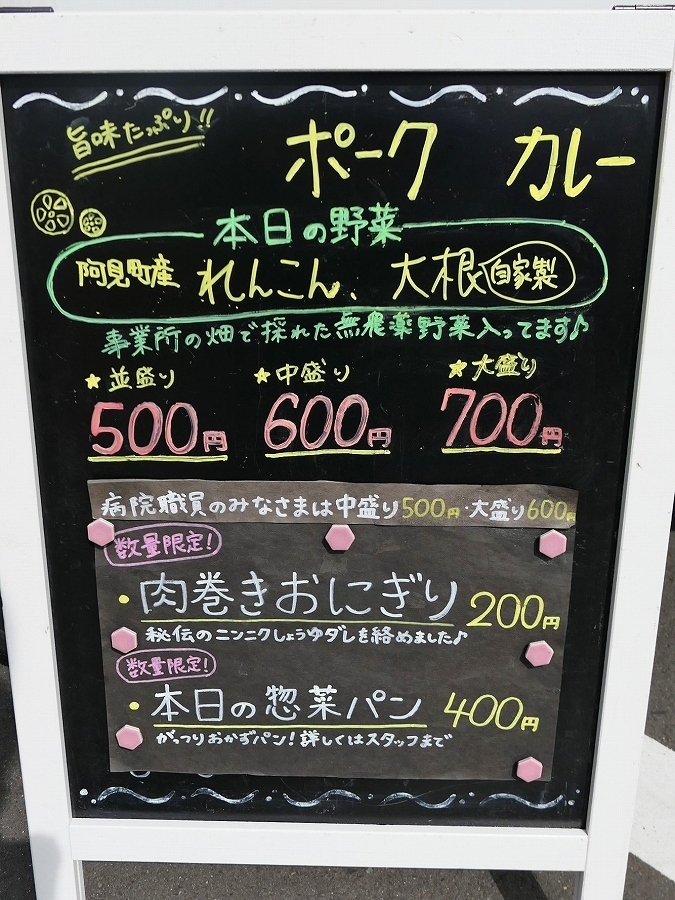 旨味たっぷり!!
ポーク カレー
本日の野菜
阿見町産 れんこん、大根 自家製
事業所の畑で採れた無農薬野菜入ってます♪
★並盛り ★中盛り ★大盛り
500円 600円 700円
病院職員のみなさまは中盛り500円・大盛り600円
数量限定!
・肉巻きおにぎり 200円
秘伝のニンニクしょうゆダレを絡めました♪
数量限定!
・本日の惣菜パン 400円
がっつりおかずパン!詳しくはスタッフまで